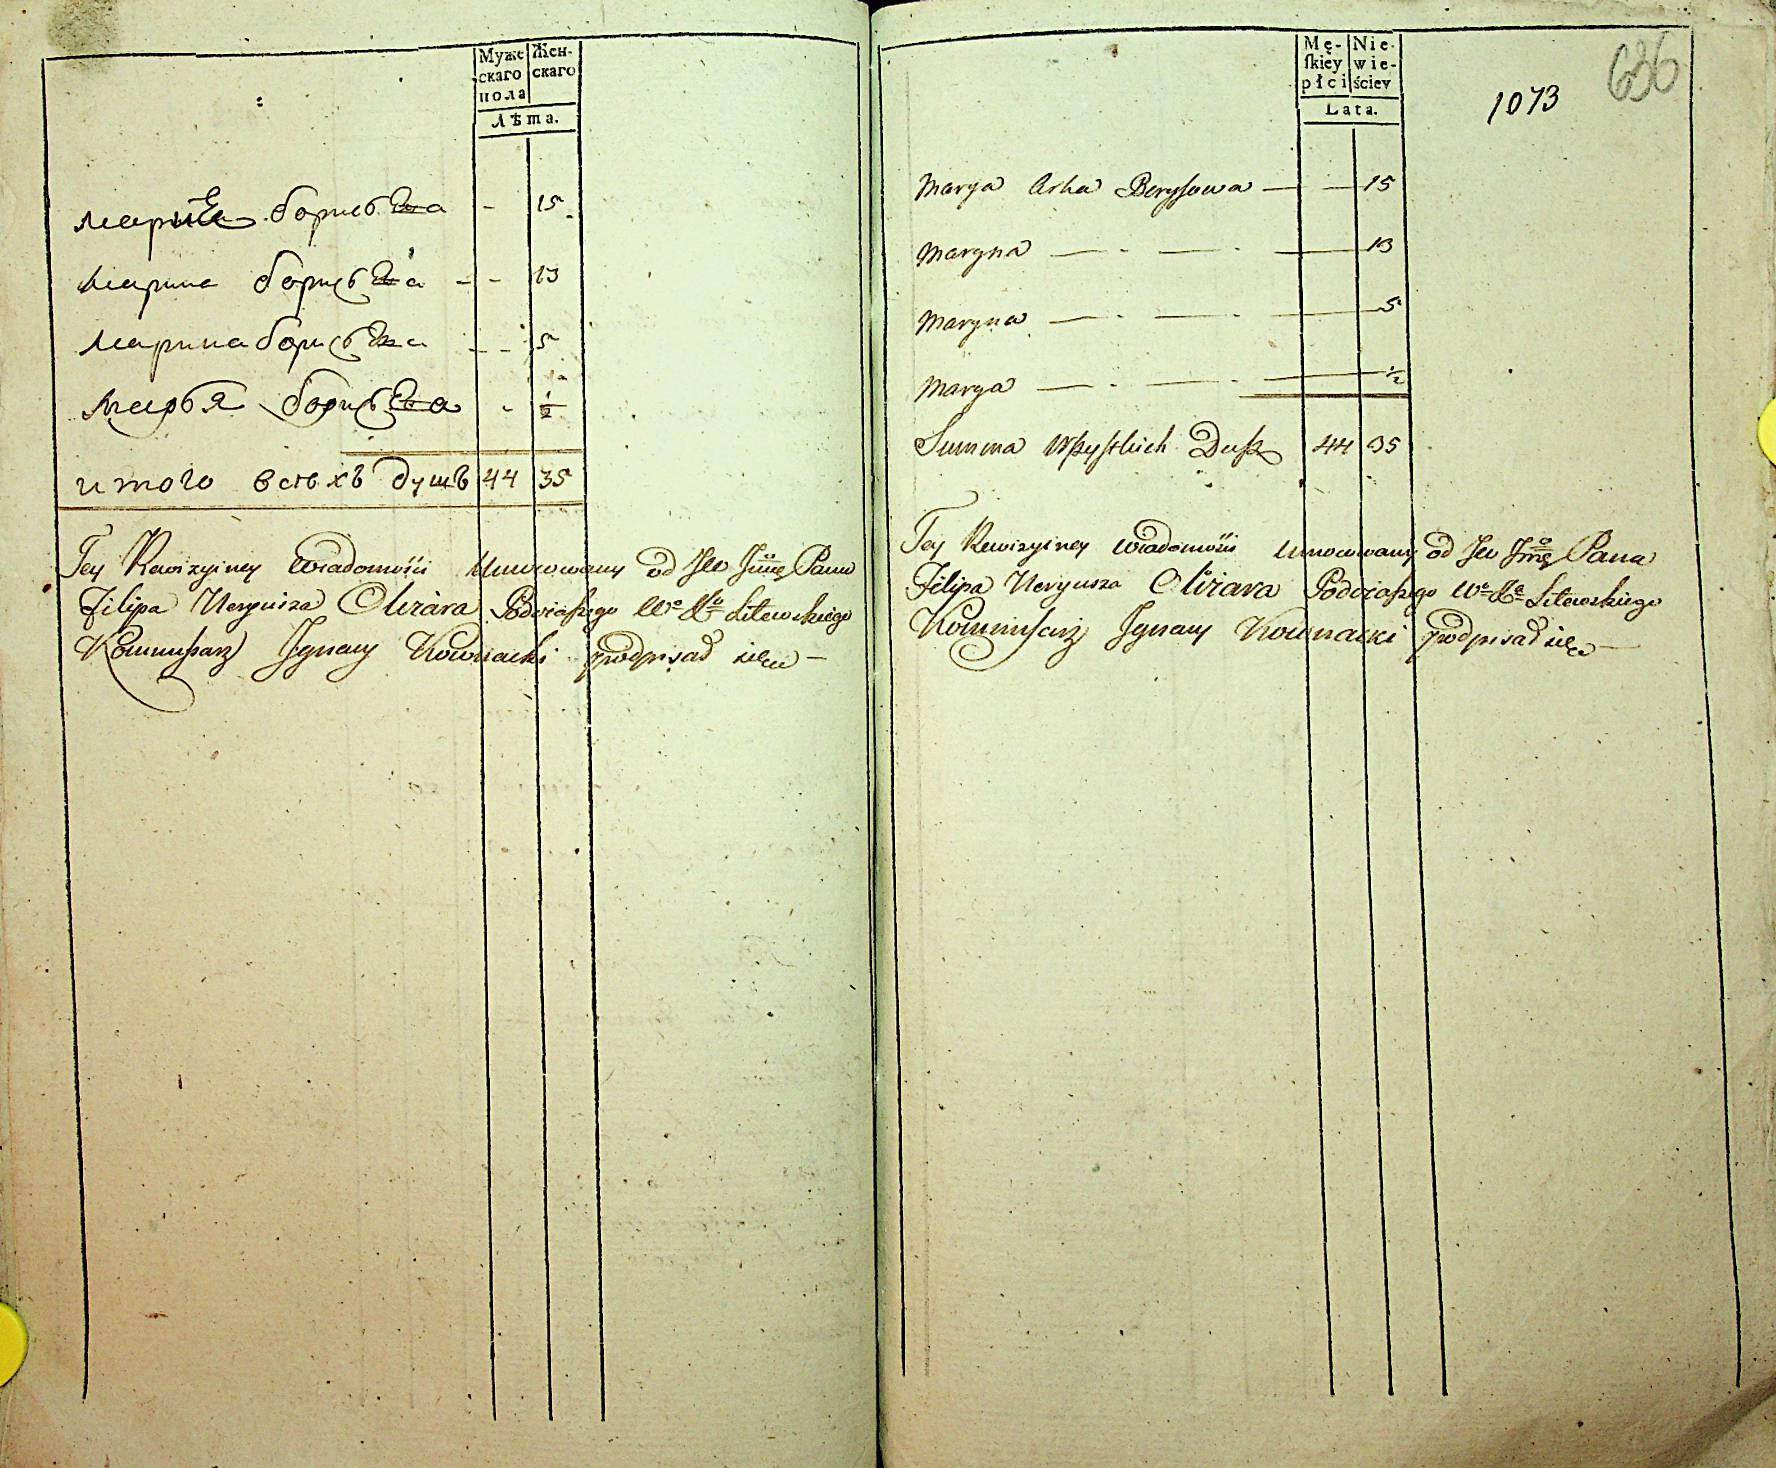 Муже Жен-
скаго скаго
пола
Лѣта.
Мариа борисова - 15
Марина борисова - - 13
Марина борисова - - 5
Марья борисова - 1/2
итого всѣхъ душъ 44 35
Tey Rewizyiney Wiadomości Umocowany od Jw Jmę Pana
Filipa Neryusza Olizara Podczaszego Wo Xo Litewskiego
Kommissarz Jgnacy Kownacki podpisał się —
Mę- Nie-
skiey wie-
płci ściey
Lata.
1073
636
Marya Borysowa — — 15
Maryna — - — - — 13
Maryna — - — - — 5
Marya — - — - — 1/2
Summa Wszystkich Dusz 44 35
Tey Rewizyiney Wiadomości Umocowany od Jw Jmę Pana
Filipa Neryusza Olizara Podczaszego Wo Xa Litewskiego
Kommissarz Jgnacy Kownacki podpisał się —